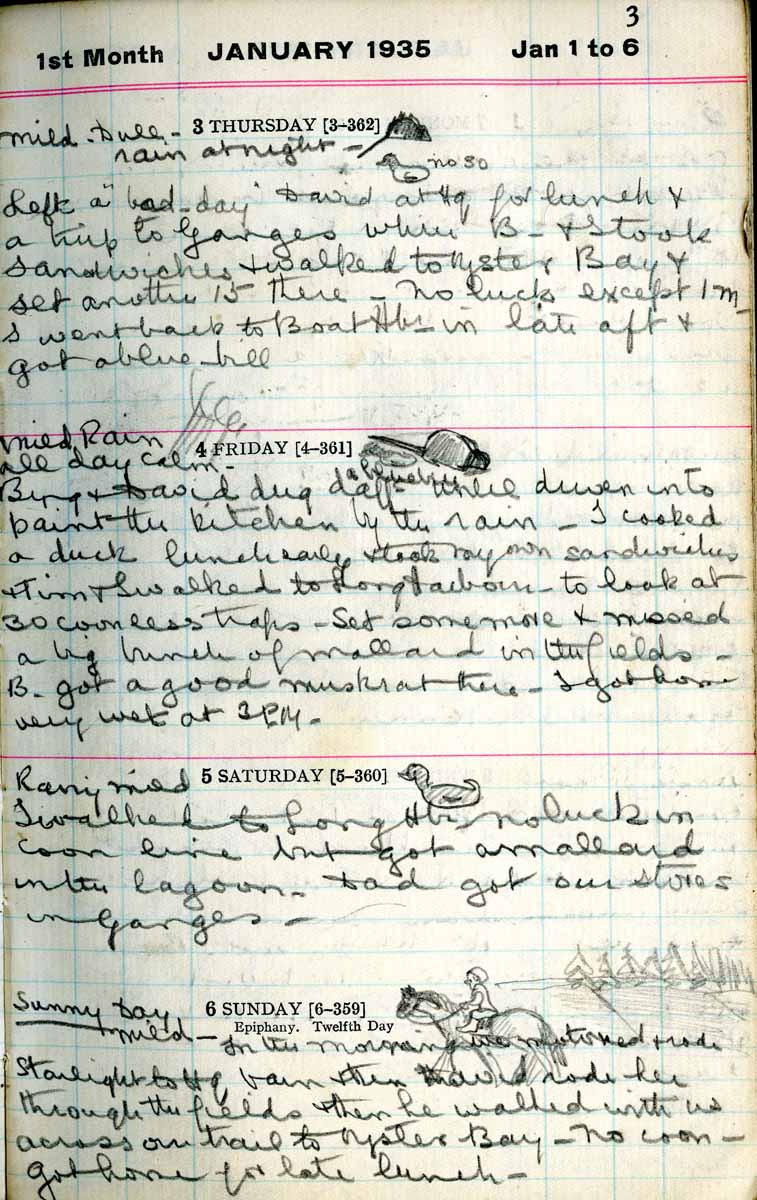 3
1st Month JANUARY 1935 Jan 1 to 6
mild - Dull - 3 THURSDAY [3–362]
rain at night -
no 30
Left a "bad-day" David at Hq for lunch &
a trip to Ganges while B - & I took
sandwiches & walked to Oyster Bay &
set another 15 there - No luck except 1 m
I went back to Boat Hbr in late aft &
got a blue-bill
mild Rain
all day calm - 4 FRIDAY [4–361]
Bing & David dug daff until driven into
paint the kitchen by the rain - I cooked
a duck lunch early & took my own sandwiches
& Tim & I walked to Long Harbour - to look at
30 coonless traps - Set some more & missed
a big bunch of mallard in the fields -
B - got a good muskrat there - I got home
very wet at 3 PM -
Rainy mild 5 SATURDAY [5–360]
I walked to Long Hbr, no luck in
coon line but got a mallard
in the lagoon - Dad got our stores
in Ganges -
Sunny Day 6 SUNDAY [6–359]
Epiphany. Twelfth Day
mild - In the morning we motored & rode
Starlight to Hq barn & then David rode her
through the fields & then he walked with us
across our trail to Oyster Bay - No coon -
got home for late lunch -